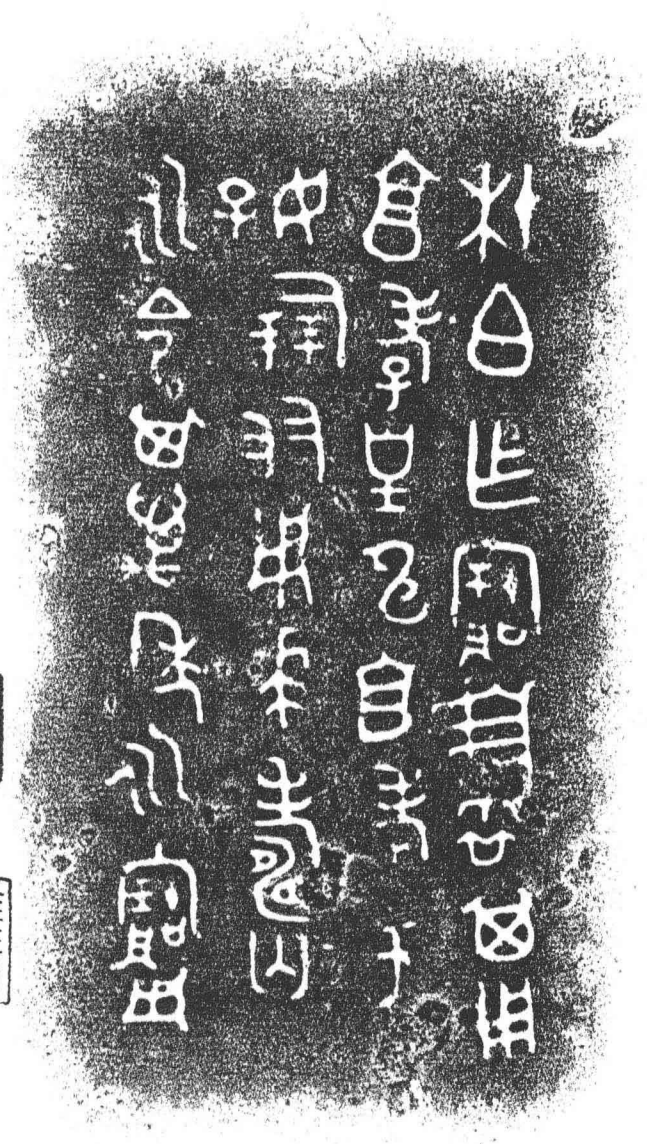 杜白乍寶盨其用
享孝皇申且考于
好倗友用𠦪壽匄
永令其萬年永寶用